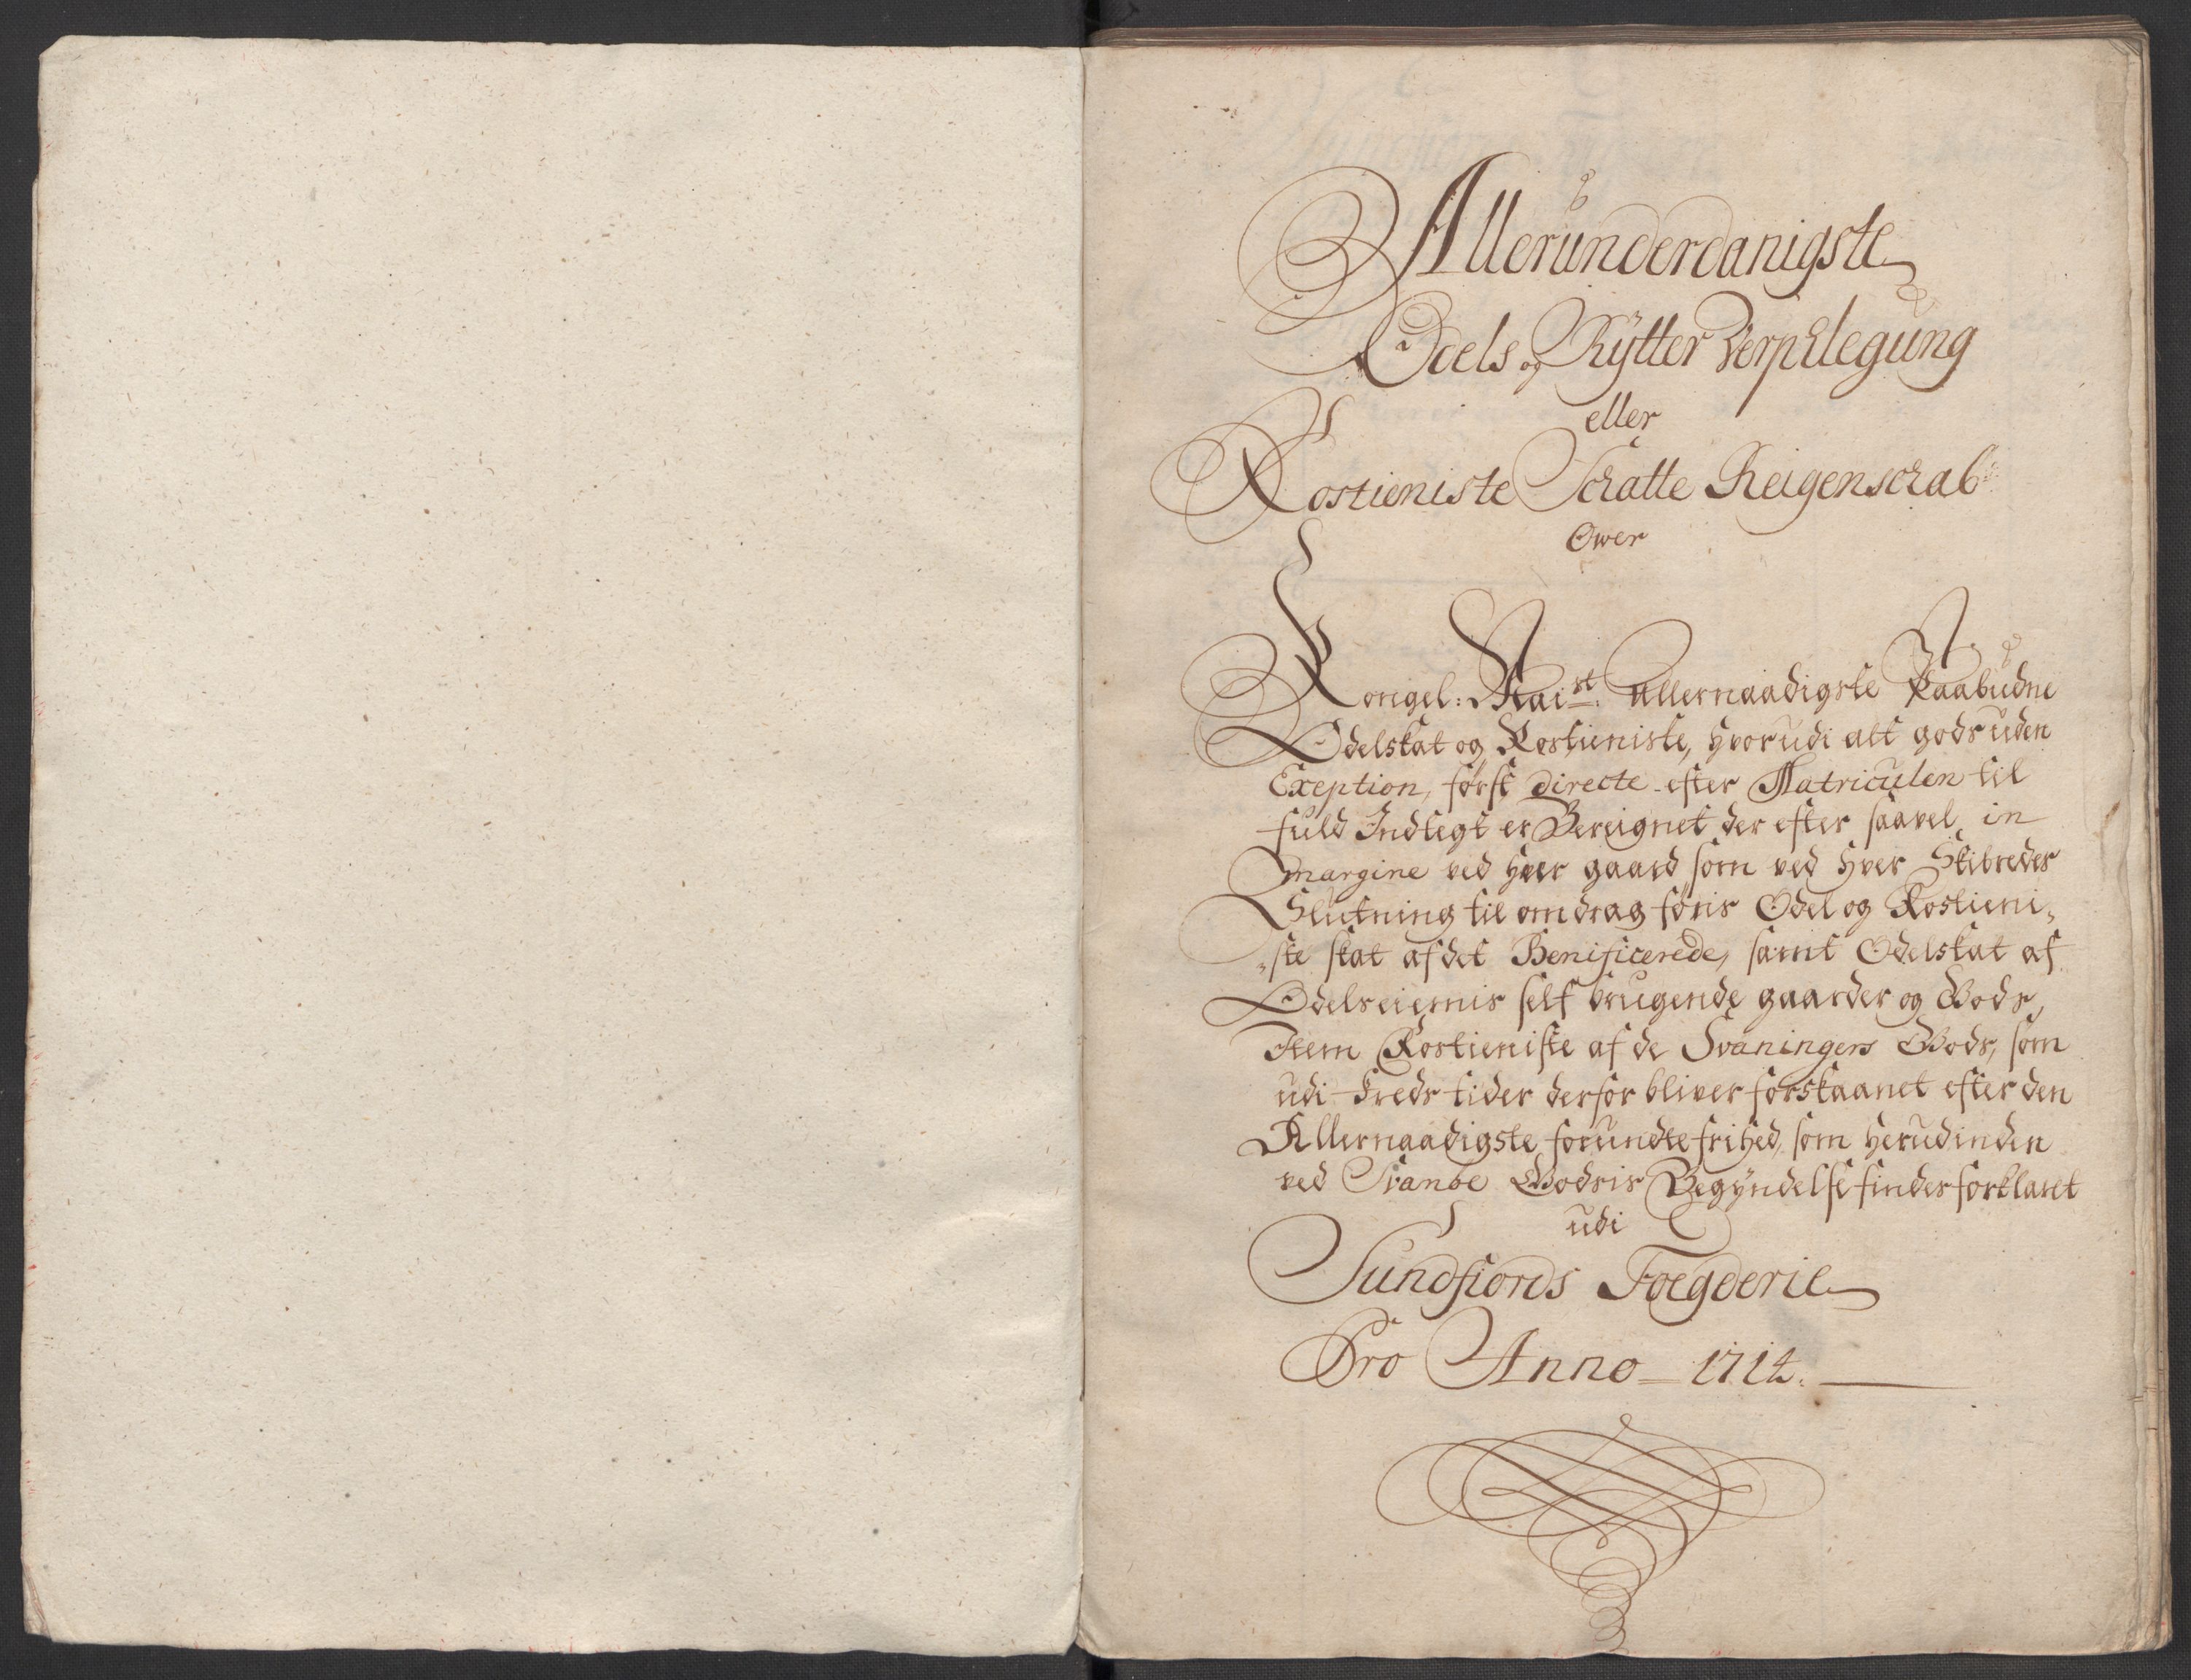 Allerunderdanigste
Odels og Rytter Verpflegung
eller
Rostieniste Schatte Reigenschab
Ower
Kongel: Maist: allernaadigste Paabudne
Odelskat og Rostieniste, hvorudi alt gods uden
Exeption, først directe efter Matriculen til
fuld Indlegt er Bereignet der efter saavel in
margine ved hver gaard som ved hver Skibredes
Slutning til omdrag føris Odel og Rostieni-
ste skat af det Benificerede, samt Odelskat af
Odelseiernis self brugende gaarder og Gods,
Item Rostieniste af de Svaningers Gods, som
udi freds tider derfor bliver forskaanet efter den
Allernaadigste forundte frihed, som herudinden
ved Svanøe Godsis Begyndelse findes forklaret
udi
Sundfiords Foegderie
Pro Anno 1714.